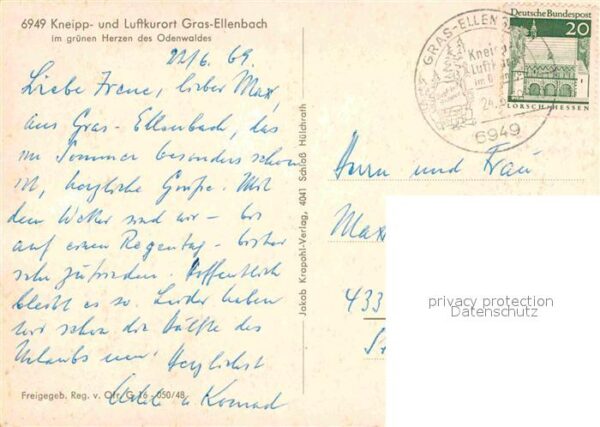 6949 Kneipp- und Luftkurort Gras-Ellenbach
im grünen Herzen des Odenwaldes
22/6. 69.
Liebe Irene, lieber Max,
aus Gras-Ellenbach, das
im Sommer besonders schön
ist, herzliche Grüße. Mit
dem Wetter sind wir - bis
auf einen Regentag - bisher
sehr zufrieden. Hoffentlich
bleibt es so. Leider haben
wir schon die Hälfte des
Urlaubs um! Herzlichst
u Konrad
Freigegeb. Reg. v. Ofr. G 16 - 050/48
Jakob Krapohl-Verlag, 4041 Schloß Hülchrath
GRAS-ELLEN
Kneip
Luftk
im O
24.
6949
Deutsche Bundespost
20
LORSCH-HESSEN
Herrn und Frau
Max
433
privacy protection
Datenschutz